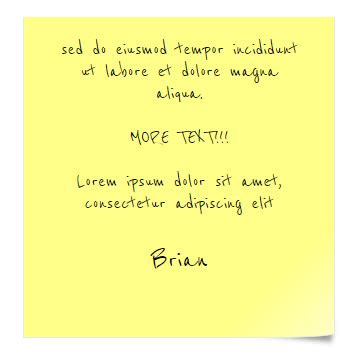 sed do eiusmod tempor incididunt
ut labore et dolore magna
aliqua.
MORE TEXT!!!
Lorem ipsum dolor sit amet,
consectetur adipiscing elit
Brian